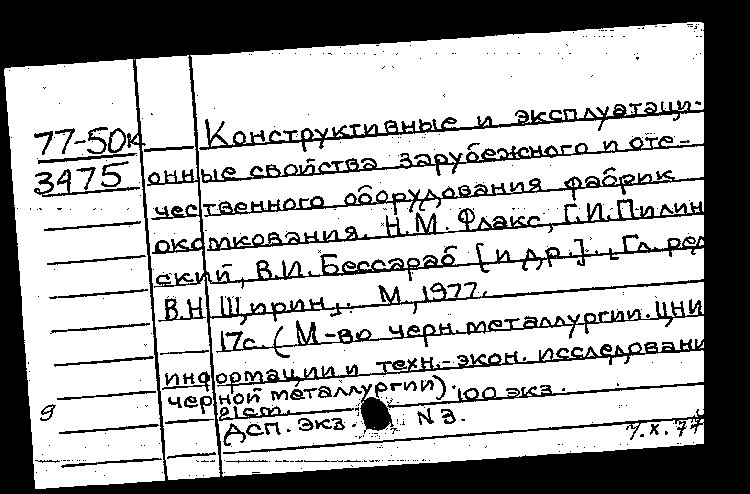 77-50к
3475
Конструктивные и эксплуатаци-
онные свойства зарубежного и оте-
чественного оборудования фабрик
окомкования. Н.М. Флакс, Г.И. Пилин
ский, В.И. Бессараб [и др.]. „Гл. ред
В.Н Щирин„. М., 1977.
17с. (М-во черн. металлургии. ЦНИ
информации и техн.-экон. исследовани
черной металлургии).
21см. 100 экз.
ДСП. экз. N 3.
7.X.77